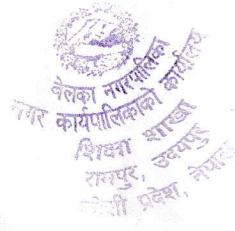 बेलका नगरपालिका
नगर कार्यपालिकाको कार्यालय
शिक्षा शाखा
रामपुर, उदयपुर
कोशी प्रदेश, नेपाल